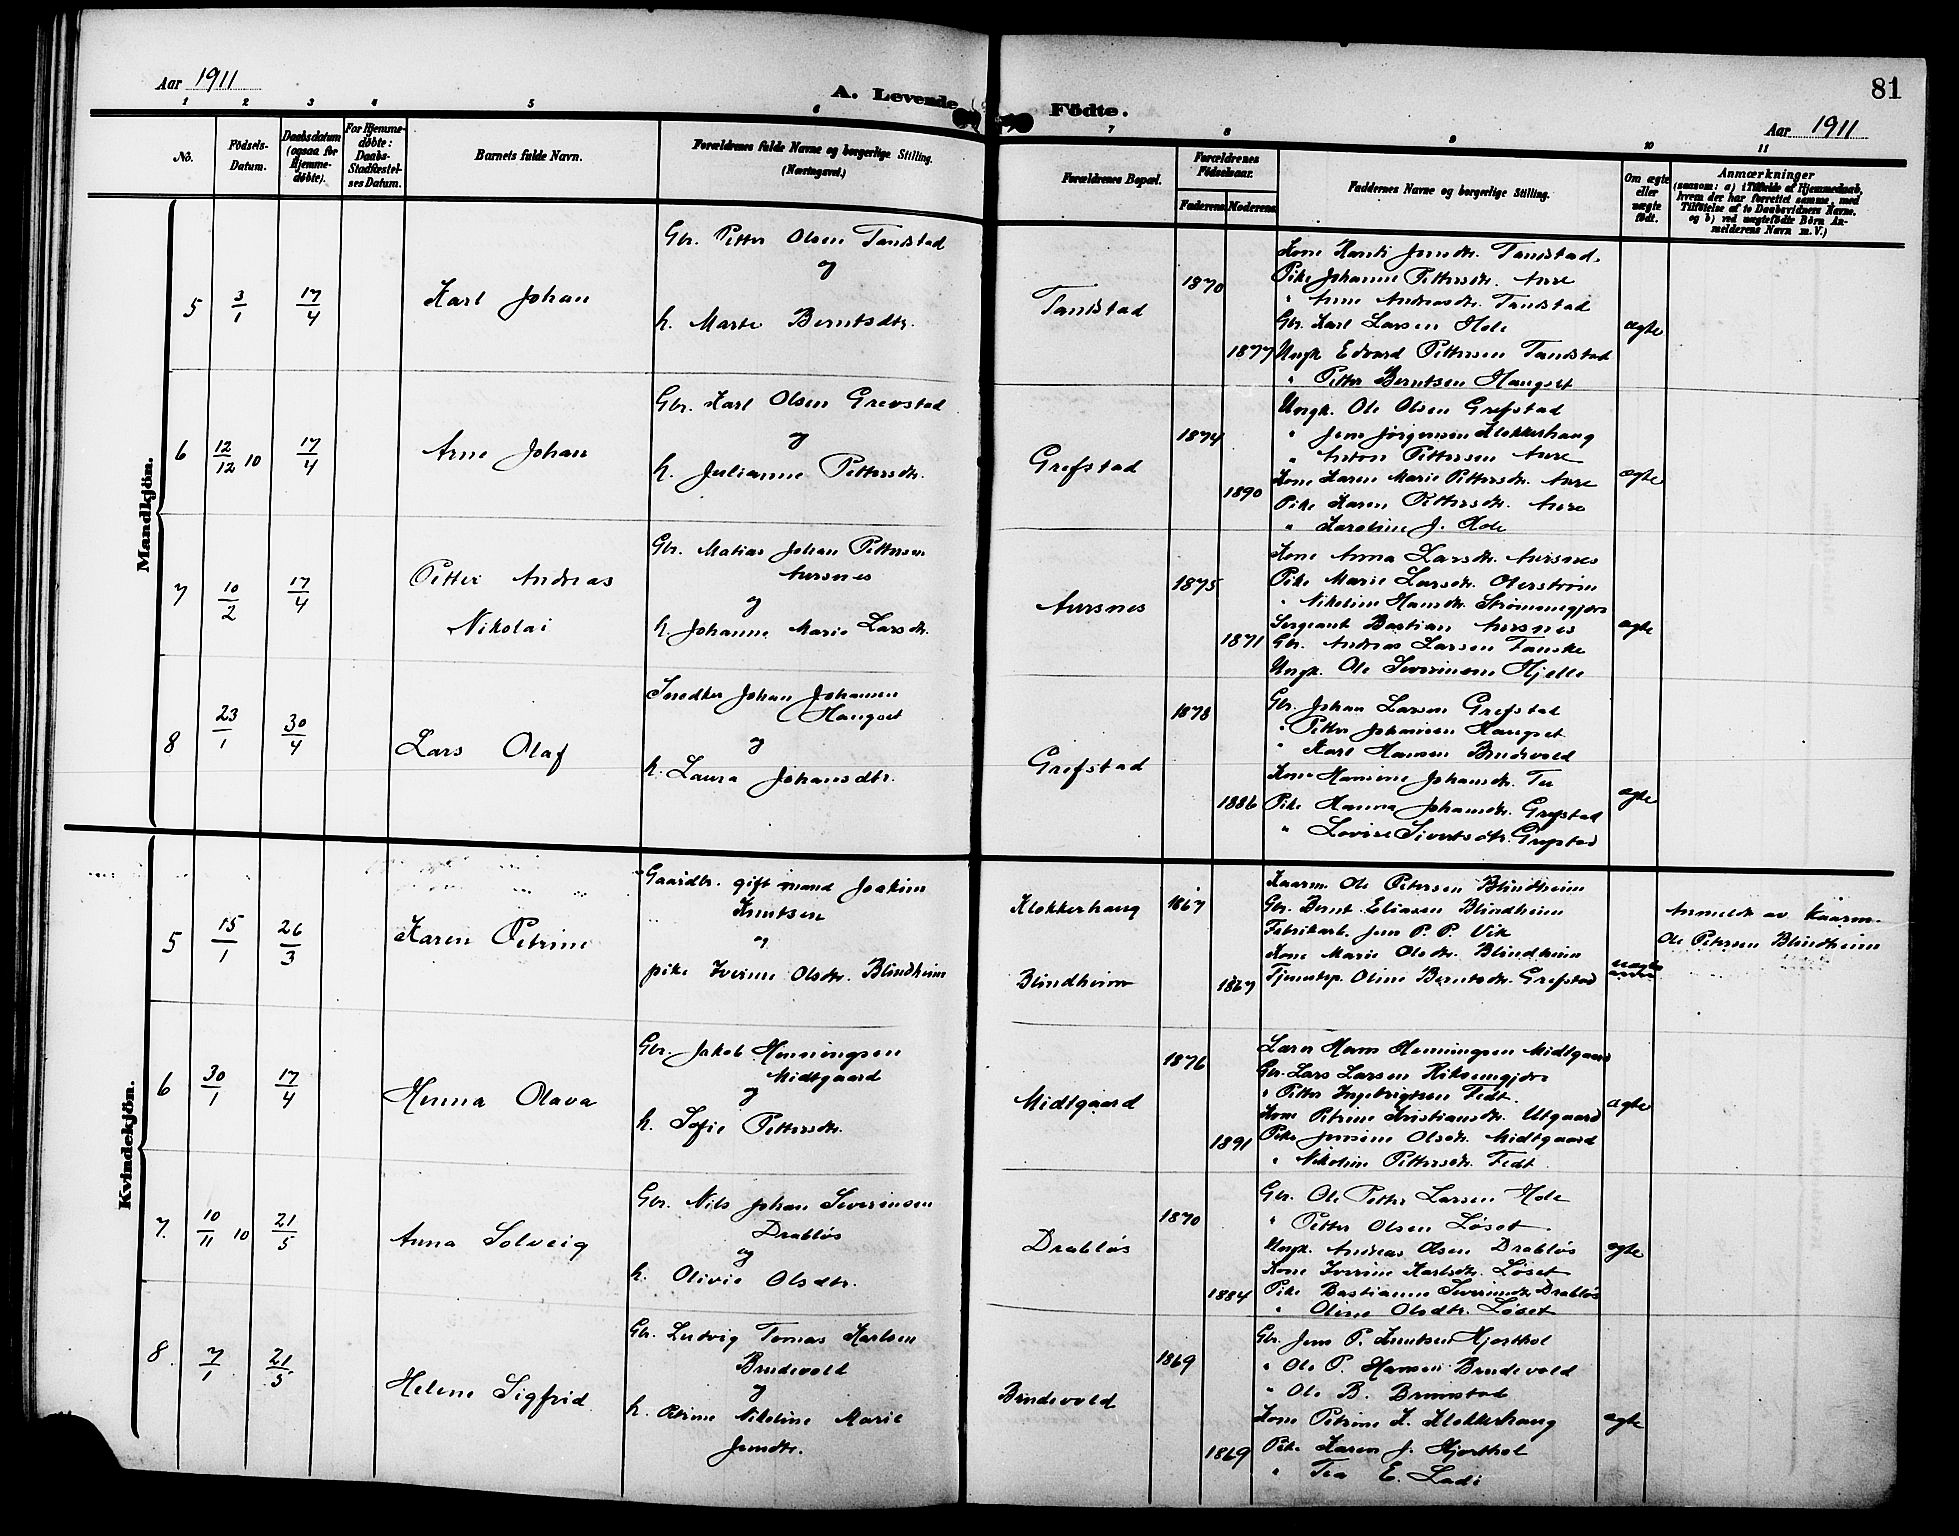 Aar 1911
A. Levende Födte.
81
Aar 1911
1 2 3 4 5 6 7 8 9 10 11
No.
Födsels-
Datum.
Daabsdatum
(ogsaa for
Hjemme-
døbte).
For Hjemme-
døbte:
Daabs-
Stadfæstel-
ses Datum.
Barnets fulde Navn.
Forældrenes fulde Navne og borgerlige Stilling.
(Næringsvei.)
Forældrenes Bopæl.
Forældrenes
Fødselsaar.
Faderens
Moderens
Faddernes Navne og borgerlige Stilling.
Om ægte
eller
uægte
født.
Anmærkninger
(saasom: a) i Tilfælde af Hjemmedaab,
hvem der har forrettet samme, med
Tilføielse af to Daabsvidners Navne.
og b) ved uægtefødte Börn An-
melderens Navn m.V.)
Mandkjön.
5
3/1
17/4
Karl Johan
Gbr. Petter Olsen Tandstad
og
h. Marte Berntsdtr.
Tandstad
1870
1877
Kone Jensdtr. Tandstad
Pike Johanne Pettersdtr. Aure
" Anne Andreasdtr. Tandstad
Gbr. Karl Larsen Hole
Ungk. Edvard Pettersen Tandstad
" Petter Berntsen Haugset
ægte
6
12/12 10
17/4
Arne Johan
Gbr. Karl Olsen Grevstad
og
h. Julianne Pettersdtr.
Grefstad
1874
1890
Ungk. Ole Olsen Grefstad
" Jens Jörgensen Klokkerhaug
" Anton Pettersen Aure
Kone Karen Marie Pettersdtr. Aure
Pike Karen Pettersdtr. Aure
" Karoline J. Hole
ægte
7
10/2
17/4
Petter Andreas
Nikolai
Gbr. Matias Johan Pettersen
Aursnes
og
h. Johanne Marie Larsdtr.
Aursnes
1875
1871
Kone Anna Larsdtr. Aursnes
Pike Marie Larsdtr.
" Nikoline Hansdtr. Strömmegjære
Sergeant Bastian Aursnes
Gbr. Andreas Larsen Fauske
Ungk. Ole Severinsen Hjelle
ægte
8
23/1
30/4
Lars Olaf
Snedker Johan Johansen
Haugset
og
h. Laura Johansdtr.
Grefstad
1878
1886
Gbr. Johan Larsen Grefstad
" Petter Johansen Haugset
" Karl Hansen Brudevold
Kone Hansine Johansdtr. Tu
Pike Hanna Johansdtr. Grefstad
" Lovise Sivertsdtr. Grefstad
ægte
Kvindekjön.
5
15/1
26/3
Karen Petrine
Gaardbr. gift mand Joakim
Knutsen
og
pike Iverine Olsdtr. Blindheim
Klokkerhaug
Blindheim
1867
1867
Kaarm. Ole Petersen Blindheim
Gbr. Bernt Eliasen Blindheim
Fabrikarb. Jens P. P. Vik
Kone Marie Olsdtr. Blindheim
Tjenestep. Oline Berntsdtr. Grefstad
uægte
Anmeldt av kaarm.
Ole Petersen Blindheim
6
30/1
17/4
Henna Olava
Gbr. Jakob Henningsen
Midtgaard
og
h. Sofie Pettersdtr.
Midtgaard
1876
1891
Lærer Hans Henningsen Midtgaard
Gbr. Lars Larsen
" Petter Ingebrigtsen Fedt
Kone Petrine Kristiansdtr. Utgaard
Pike Jensine Olsdtr. Midtgaard
" Nikoline Pettersdtr. Fedt
ægte
7.
10/11 10
21/5
Anna Solveig
Gbr. Nils Johan Severinsen
Drabløs
og
h. Olivie Olsdtr.
Drabløs
1870
1884
Gbr. Ole Petter Larsen Hole
" Petter Olsen Løset
Ungk. Andreas Olsen Drabløs
Kone Iverine Karlsdtr. Løset
Pike Bastianne Severinsdtr. Drabløs
" Oline Olsdtr. Løset
ægte
8.
7/1
21/5
Helene Sigfrid
Gbr. Ludvig Tomas Karlsen
Brudevold
og
h. Petrine Nikoline Marie
Jensdtr.
Brudevold
1869
1869
Gbr. Jens P. Knutsen Hjorthol
" Ole P. Hansen Brudevold
" Ole B. Brunstad
Kone Petrine K. Klokkerhaug
Pike Karen J. Hjorthol
" Tea E. Ladi
ægte